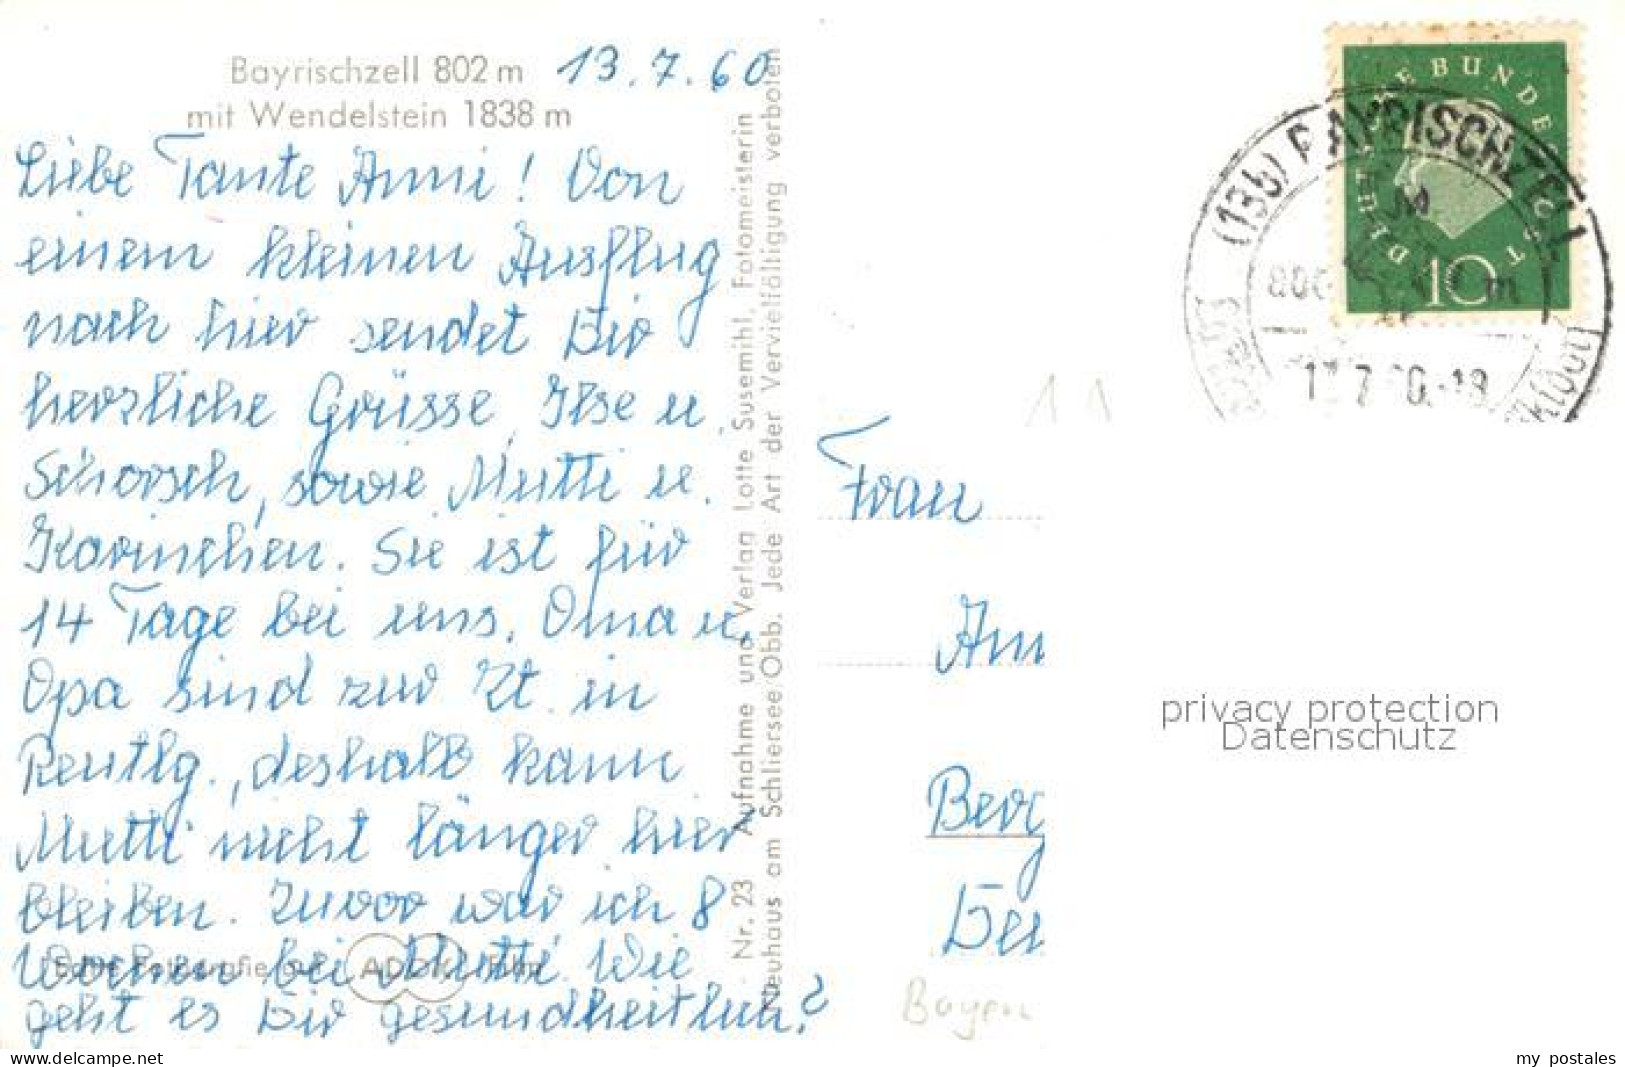 Bayrischzell 802 m
mit Wendelstein 1838 m
13.7.60
Liebe Tante Anni! Von
einem kleinen Ausflug
nach hier sendet Dir
herzliche Grüsse, Ilse u.
Schorsch, sowie Mutti u.
Karinchen. Sie ist für
14 Tage bei uns. Oma u.
Opa sind zur Zt. in
Reutlg., deshalb kann
Mutti nicht länger hier
bleiben. Zuvor war ich 8
Wochen bei Mutti. Wie
geht es Dir gesundheitlich?
Nr. 23 Aufnahme und Verlag Lotte Susemihl, Fotomeisterin
Neuhaus am Schliersee Obb. Jede Art der Vervielfältigung verboten
DEUTSCHE BUNDESPOST
10
(13b) BAYRISCHZELL
11
Frau
Ann
Berg
Bayern
privacy protection
Datenschutz
www.delcampe.net
my_postales